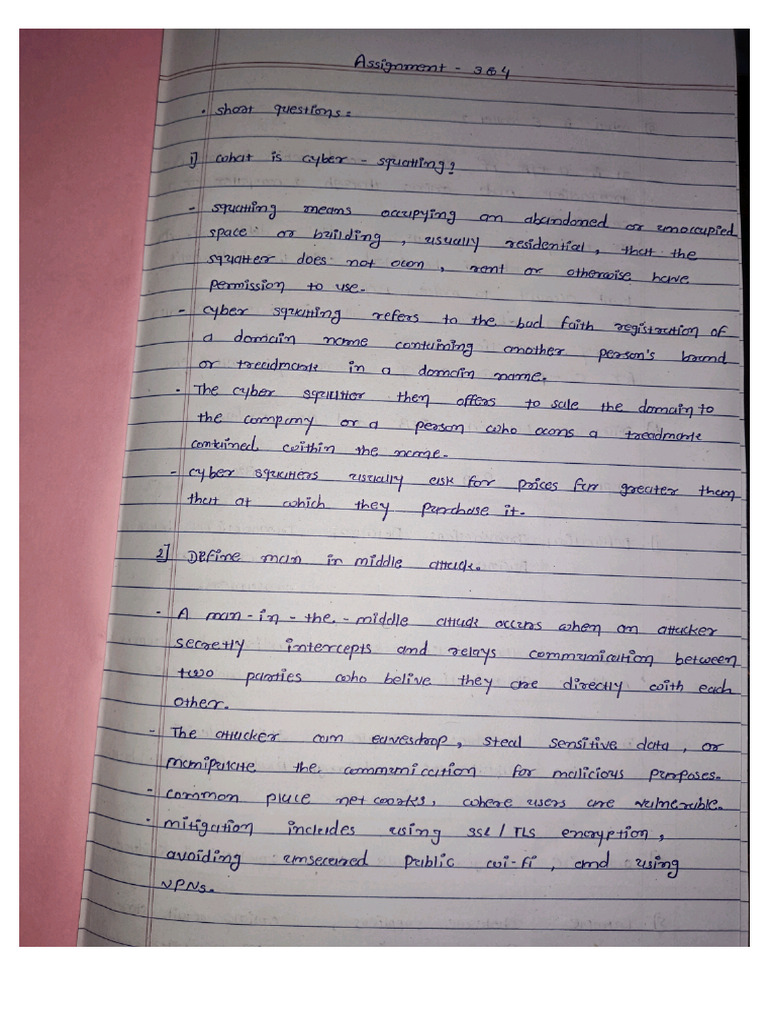 Assignment - 3 & 4
• Short questions:
1] What is cyber - squatting?
- squatting means occupying an abandoned or unoccupied
space or building, usually residential, that the
squatter does not own, rent or otherwise have
permission to use.
- cyber squatting refers to the bad faith registration of
a domain name containing another person's brand
or treadmark in a domain name.
• The cyber squatter then offers to sale the domain to
the company or a person who owns a treadmark
contained within the name.
- cyber squatters usually ask for prices far greater then
that at which they purchase it.
2] Define man in middle attack.
- A man-in-the-middle attack occurs when an attacker
secretly intercepts and relays communication between
two parties who belive they are directly with each
other.
- The attacker can eavesdrop, steal sensitive data, or
manipulate the communication for malicious purposes.
- common place networks, where users are vulnerable.
• mitigation includes using SSL / TLS encryption,
avoiding unsecured public wi-fi, and using
VPNs.